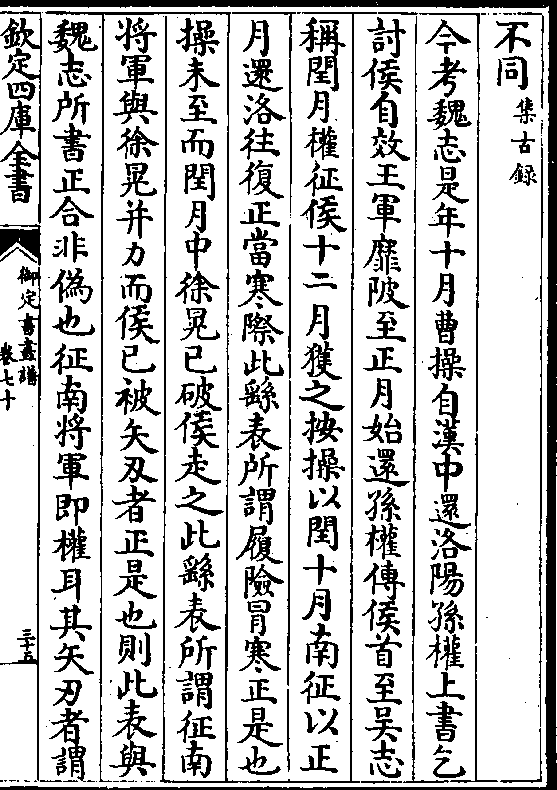 不同集古録
今考魏志是年十月曹操自漢中還洛陽孫權上書乞
討侯自效王軍靡陂至正月始還孫權傳侯首至吳志
稱閏月權征侯十二月獲之按操以閏十月南征以正
月還洛往復正當寒際此繇表所謂履險冒寒正是也
操未至而閏月中徐晃已破侯走之此繇表所謂征南
將軍與徐晃并力而侯已被矢刃者正是也則此表與
魏志所書正合非偽也征南將軍即權耳其矢刃者謂
欽定四庫全書
御定書畫譜
卷七十
三十五